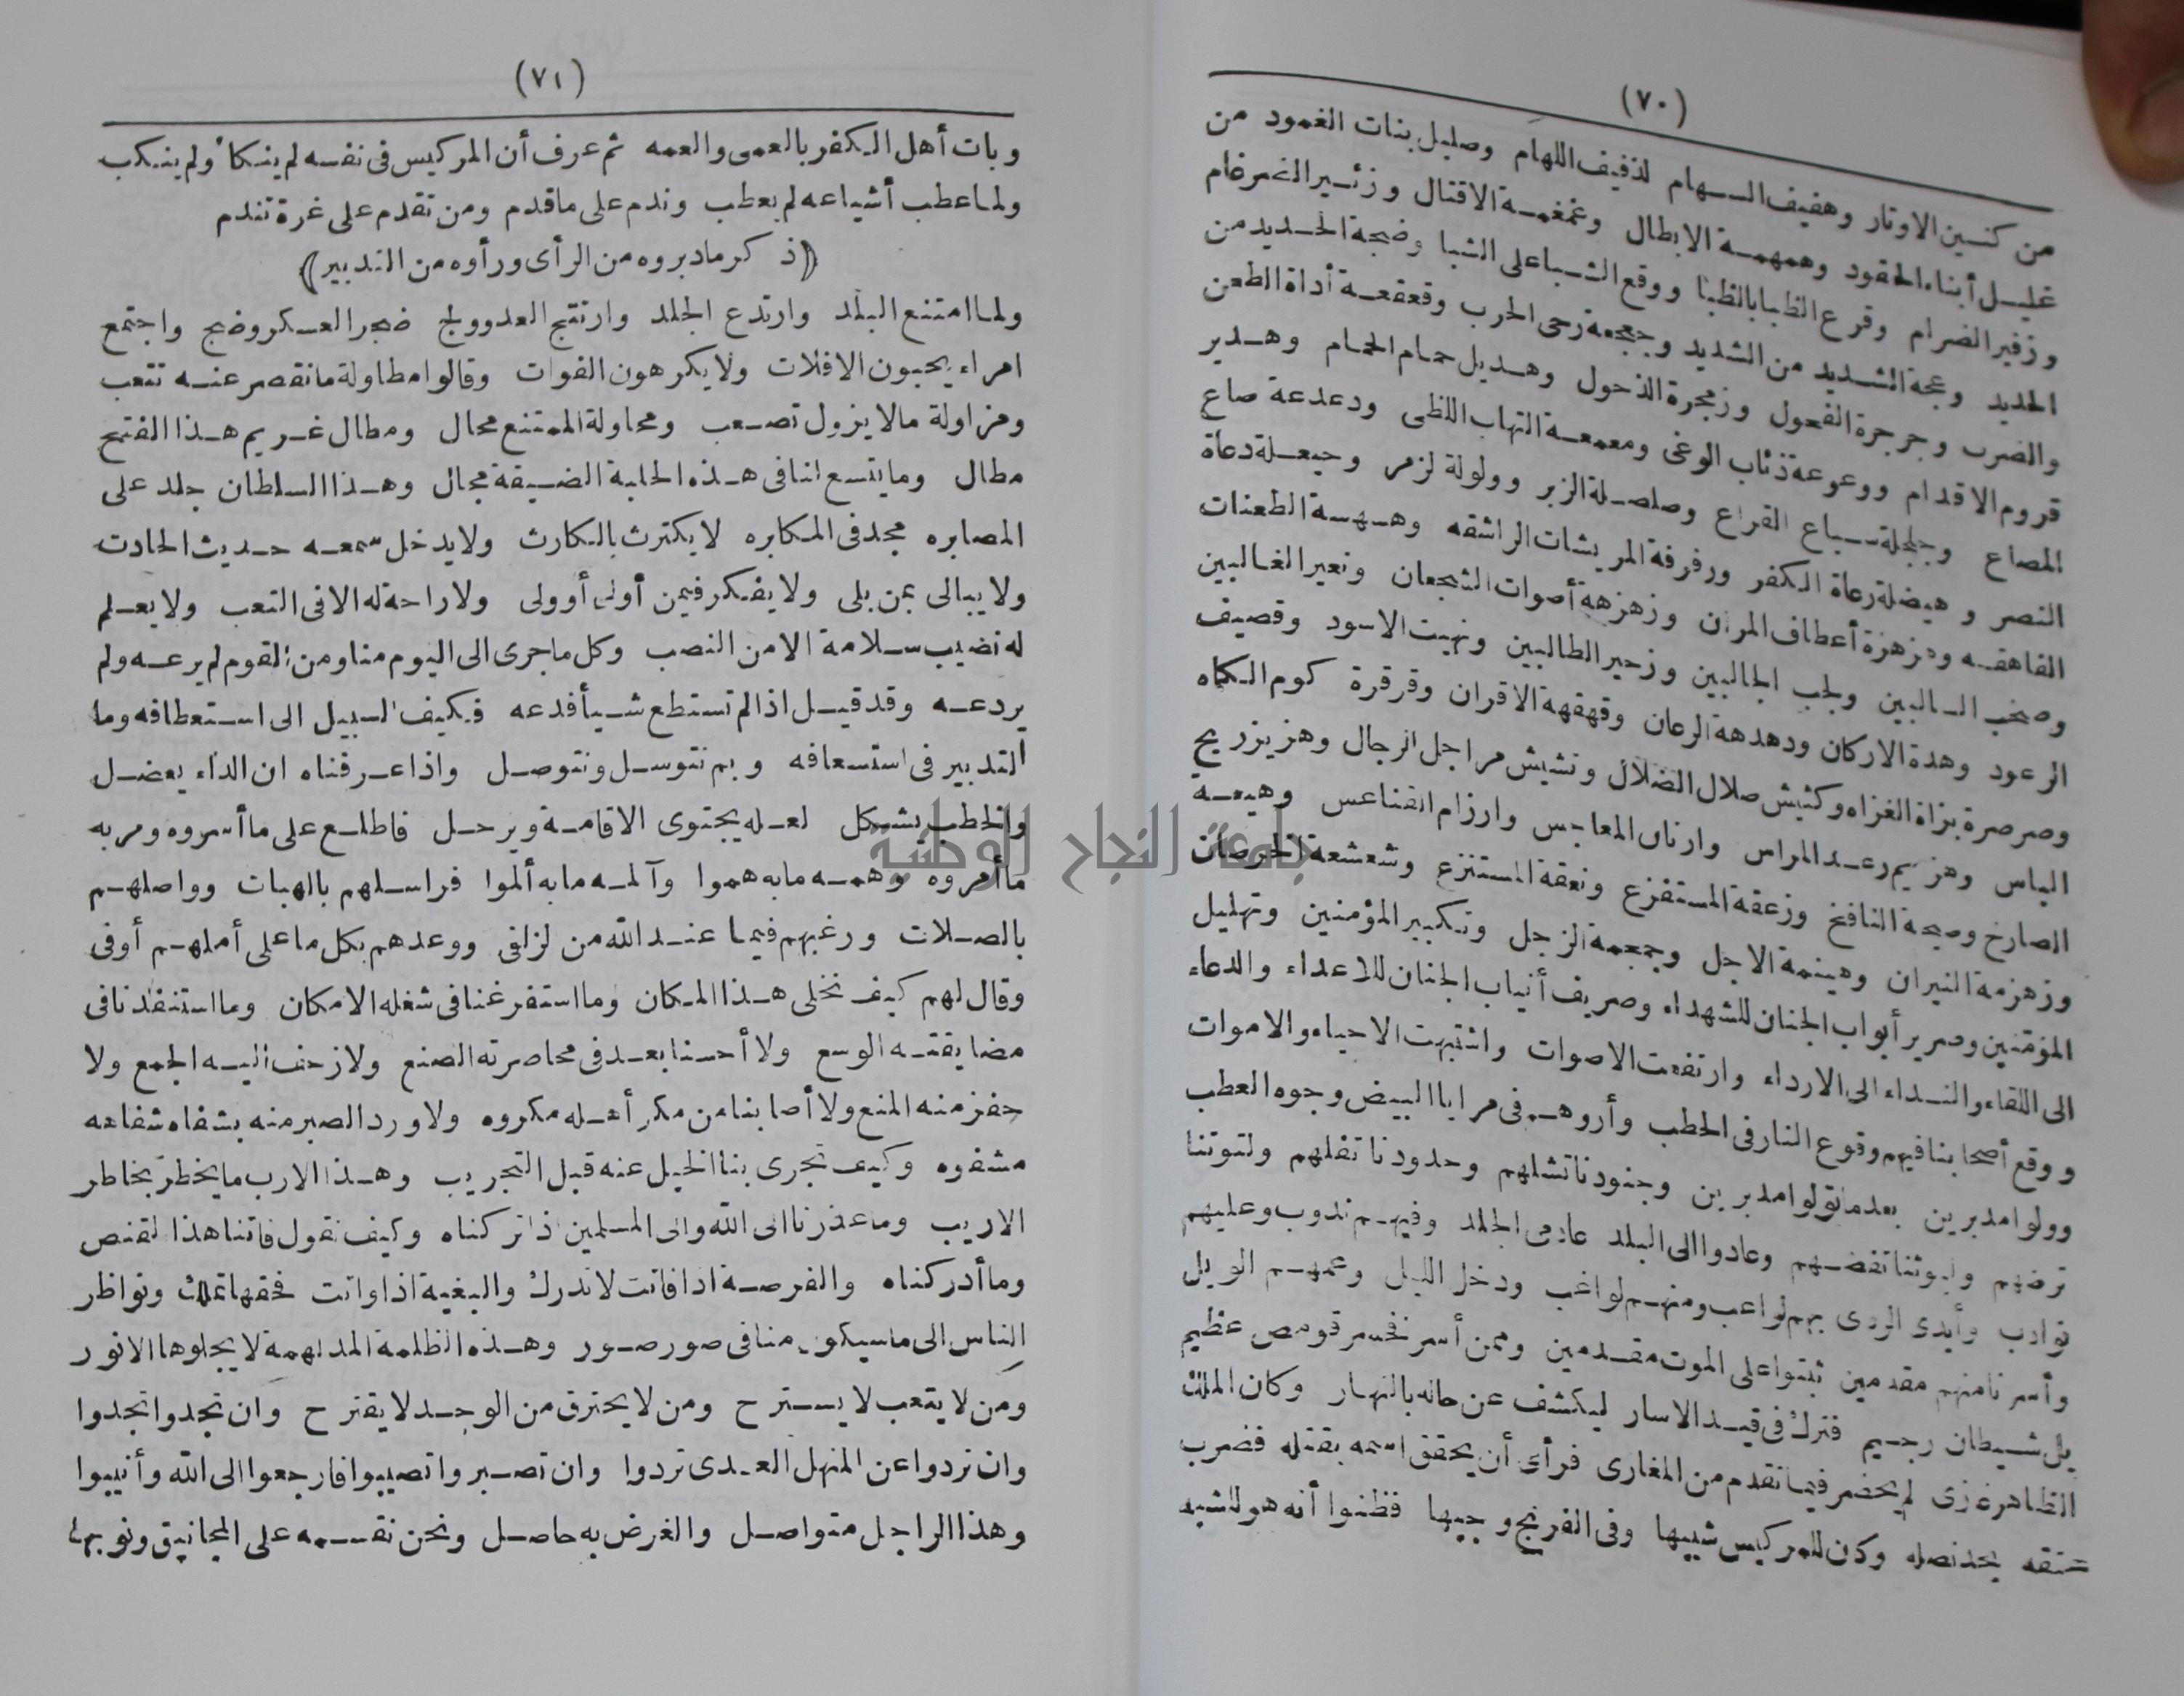 (٧٠)
من كنـين الاوتار وهفيف السـهام لذفيف اللهام وصليل بنات الغمود من
غليـل أبناء الحقود وهمهمـة الابطال وغمغمـة الاقتال وزئـير الضرغام
وزفير الضرام وقرع الظبا بالظبا ووقع الشـبا على الشبا وضجة الحـديد من
الحديد وعجة الشـديد من الشديد وجعجعة رحى الحرب وقعقعـة أداة الطعن
والضرب وجرجرة الفحول وزمجرة الذحول وهـديل حمام الحمام وهـدير
قروم الاقدام ووعوعة ذئاب الوغى ومعمعـة التهاب اللظى ودعدعة صاع
المصاع وجلجلة سـباع القراع وصلصـلة الزبر وولولة لزمر وحيعـلة دعاة
النصر وهيضلة رعاة الكفر ورفرفة المريشات الراشقه وهـهسـة الطعنات
الفاهقـه وهزهزة أعطاف المران وزهزهة أصوات الشجعان ونعير الغـالبين
وصخب السـالبين ولجب الجالبين وزحير الطالبين ونهيت الاسود وقصيف
الرعود وهدة الاركان ودهدهة الرعان وقهقهة الاقران وقرقرة كوم الكماه
وصرصرة بزاة الغزاه وكشيش صلال الضلال ونشيش مراجل الرجال وهزيز ريح
الباس وهزيم رعـد المراس وارنان المعاجس وارزام القناعس وهيعـة
الصارخ وصيحة النافخ وزعقة المستفزع ونعقة المستنزع وشعشعة الخرصان
وزهزمة النيران وهينمة الاجل وجمعمة الزجل وتكبير المؤمنين وتهليل
المؤقنين وصرير أبواب الجنان للشهداء وصريف أنياب الجنان للاعداء والدعاء
الى اللقاء والنـداء الى الارداء وارتفعت الاصوات واشتبهت الاحياء والاموات
ووقع أصحابنا فيهم وقوع النار فى الحطب وأروهـم فى مرايا البيض وجوه العطب
وولوا مدبرين بعدما تولوا مدبرين وجنودنا تشلهم وحدودنا تفلهم ولتوتنا
ترضهم وليوثنا تفضـهم وعادوا الى البلد عادمى الجلد وفيهـم ندوب وعليهم
نوادب وأيدى الردى بهم لواعب ومنهـم لواغب ودخل الليل وعمهـم الويل
وأسرنا منهم مقدمين ثبتوا على الموت مقـدمين وممن أسر نخسر قومص عظيم
بل شـيطان رجـيم فترك فى قيـد الاسار ليكشف عن حاله بالنهـار وكان الملك
الظاهر غازى لم يحضر فيما تقدم من المغازى فرأى أن يحقق اسمه بقتله فضرب
عنقه بحد نصله وكان للمركيس شبيها وفى الفرنج وجيها فظنوا أنه هو للشبه
(٧١)
وبات أهل الكفر بالعمى والعمه ثم عرف أن المركيس فى نفسه لم ينكأ ولم ينكب
ولما عطب أشياعه لم يعطب وندم على ما قدم ومن تقدم على غرة تندم
(ذكر ما دبروه من الرأى ورأوه من التدبير)
ولما امتنع البلد وارتدع الجلد وارتتج العدو ولج ضجر العسكر وضج واجتمع
امراء يحبون الافلات ولا يكرهون الفوات وقالوا مطاولة ما نقصر عنـه تتعب
ومزاولة ما لا يزول تصـعب ومحاولة الممتنع محال ومطال غـريم هـذا الفتح
مطال وما يتسع لنا فى هـذه الحلبة الضـيقة مجال وهـذا السلطان جلد على
المصابره مجد فى المكابره لا يكترث بالكارث ولا يدخل سمعـه حـديث الحادث
ولا يبالى بمن بلى ولا يفكر فيمن أولى أو ولى ولا راحة له الا فى التعب ولا يعـلم
له نصيب سـلامة الا من النصب وكل ما جرى الى اليوم منا ومن القوم لم يرعـه ولم
يردعـه وقد قيـل اذا لم تستطع شـيأ فدعه فكيف السبيل الى استعطافه وما
التدبير فى استسعافه وبم نتوسـل ونتوصـل واذا عـرفناه ان الداء يعضـل
والخطب يشكل لعـله يجتوى الاقامـة ويرحـل فاطلـع على ما أسروه ومر به
ما أمروه وهمـه ما به هموا وآلمـه ما به ألموا فراسـلهم بالهبات وواصلهـم
بالصـلات ورغبهم فيما عنـد الله من لزلفى ووعدهم بكل ما على أملهـم أوفى
وقال لهم كيف نخلى هـذا المكان وما استفرغنا فى شغله الامكان وما استنفدنا فى
مضايقتـه الوسع ولا أحسنا بعـد فى محاصرته الصنع ولا زحف اليـه الجمع ولا
حفز منه المنع ولا أصابنا من مكر أهـله مكروه ولا ورد الصبر منه بشفاه شفاهه
مشفوه وكيف تجرى بنا الخيل عنه قبل التجريب وهـذا الارب ما يخطر بخاطر
الاريب وما عذرنا الى الله والى المسلمين اذا تركناه وكيف نقول فاتنا هذا القنص
وما أدركناه والفرصـة اذا فاتت لا تدرك والبغية اذا واتت فحقها تملك ونواظر
الناس الى ما سيكون منا فى صور صـور وهـذه الظلمة المدلهمة لا يجلوها الا نور
ومن لا يتعب لا يسـتريح ومن لا يحترق من الوجـد لا يقترح وان تجدوا تجدوا
وان تردوا عن المنهل العـدى تردوا وان تصـبروا تصيبوا فارجعوا الى الله وأنيبوا
وهذا الراجل متواصـل والغرض به حاصـل ونحن نقسـمه على المجانيق ونوبها